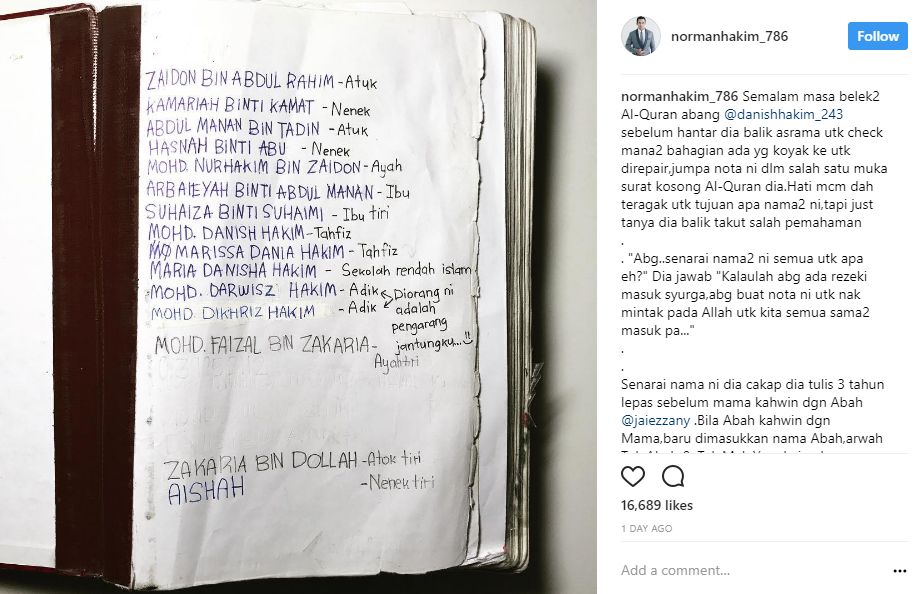 ZAIDON BIN ABDUL RAHIM - Atuk
KAMARIAH BINTI KAMAT - Nenek
ABDUL MANAN BIN TADIN - Atuk
HASNAH BINTI ABU - Nenek
MOHD. NURHAKIM BIN ZAIDON - Ayah
ARBAIEYAH BINTI ABDUL MANAN - Ibu
SUHAIZA BINTI SUHAIMI - Ibu tiri
MOHD. DANISH HAKIM - Tahfiz
MARISSA DANIA HAKIM - Tahfiz
MARIA DANISHA HAKIM - Sekolah rendah islam
MOHD. DARWISZ HAKIM - Adik
MOHD. DIKHRIZ HAKIM - Adik
Diorang ni
adalah
pengarang
jantungku...
MOHD. FAIZAL BIN ZAKARIA -
Ayah tiri
ZAKARIA BIN DOLLAH - Atok tiri
AISHAH - Nenek tiri
normanhakim_786
Follow
normanhakim_786 Semalam masa belek2
Al-Quran abang @danishhakim_243
sebelum hantar dia balik asrama utk check
mana2 bahagian ada yg koyak ke utk
direpair,jumpa nota ni dlm salah satu muka
surat kosong Al-Quran dia.Hati mcm dah
teragak utk tujuan apa nama2 ni,tapi just
tanya dia balik takut salah pemahaman
.
. "Abg..senarai nama2 ni semua utk apa
eh?" Dia jawab "Kalaulah abg ada rezeki
masuk syurga,abg buat nota ni utk nak
mintak pada Allah utk kita semua sama2
masuk pa..."
.
.
Senarai nama ni dia cakap dia tulis 3 tahun
lepas sebelum mama kahwin dgn Abah
@jaiezzany .Bila Abah kahwin dgn
Mama,baru dimasukkan nama Abah,arwah
16,689 likes
1 DAY AGO
Add a comment...